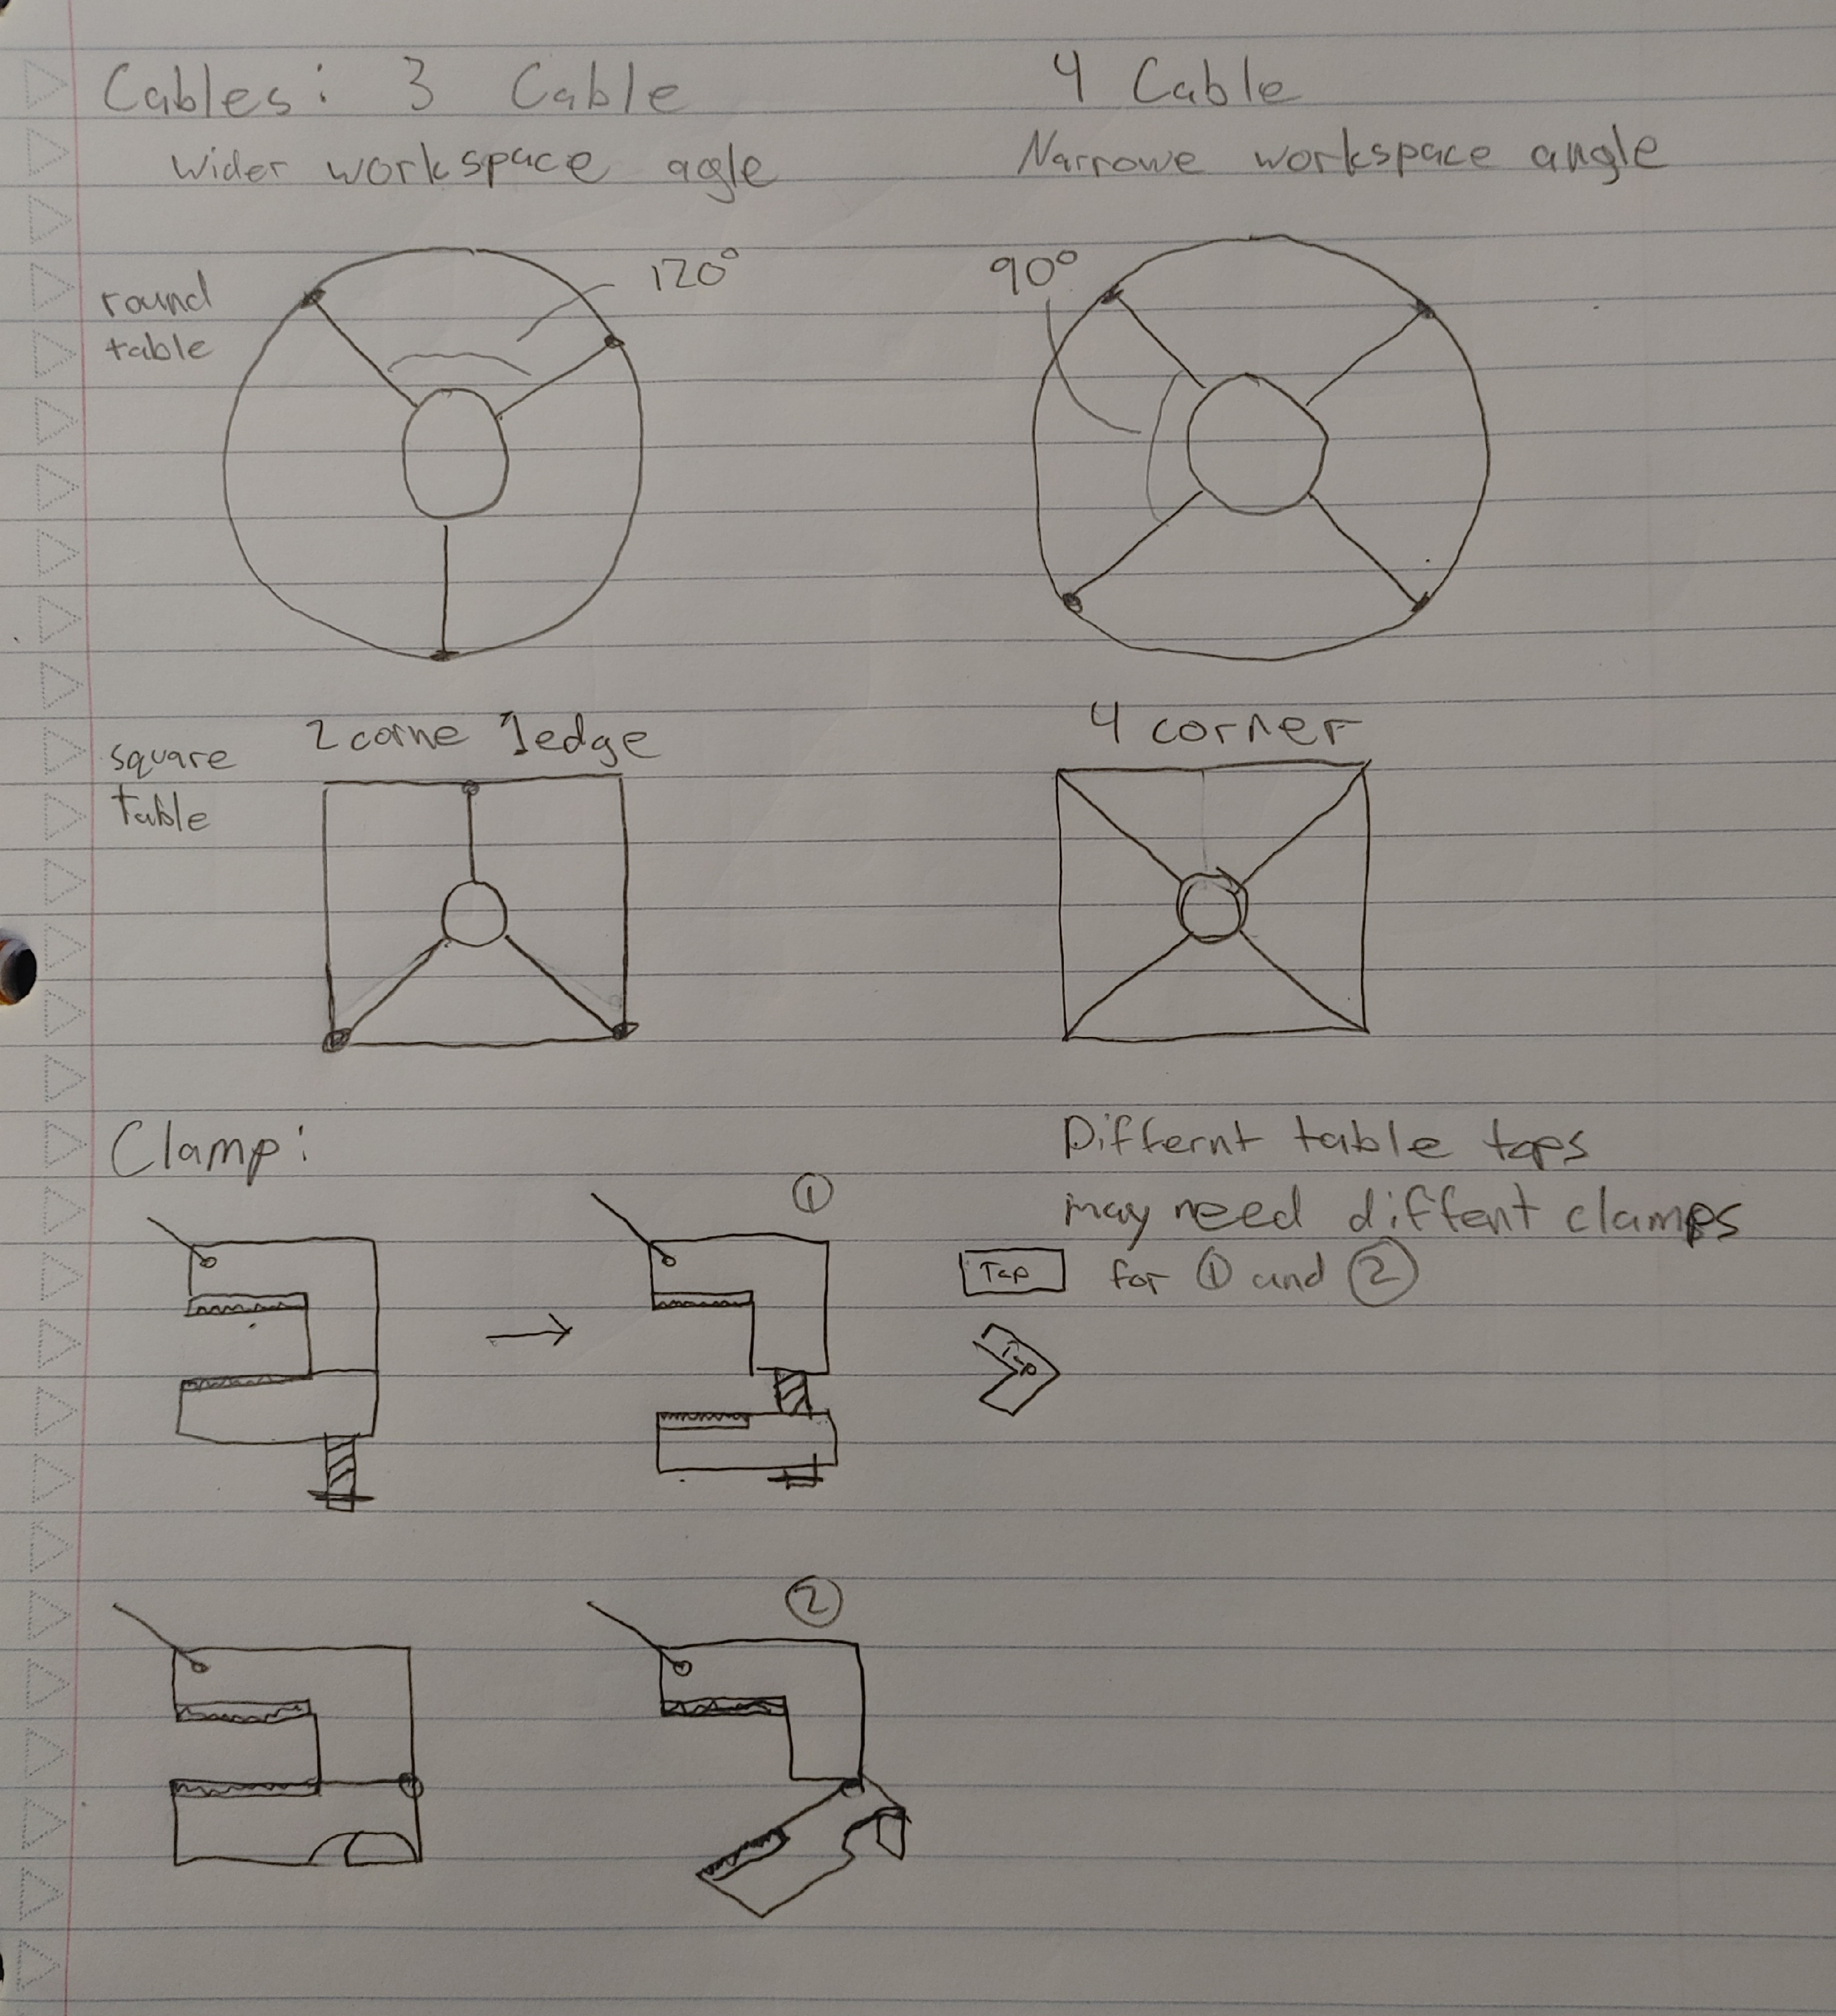 Cables: 3 Cable
Wider workspace agle
4 Cable
Narrowe workspace angle
round
table
120°
90°
square
table
2 corne 1 edge
4 corner
Clamp:
①
Differnt table tops
may need diffent clamps
for ① and ②
Top
Top
②